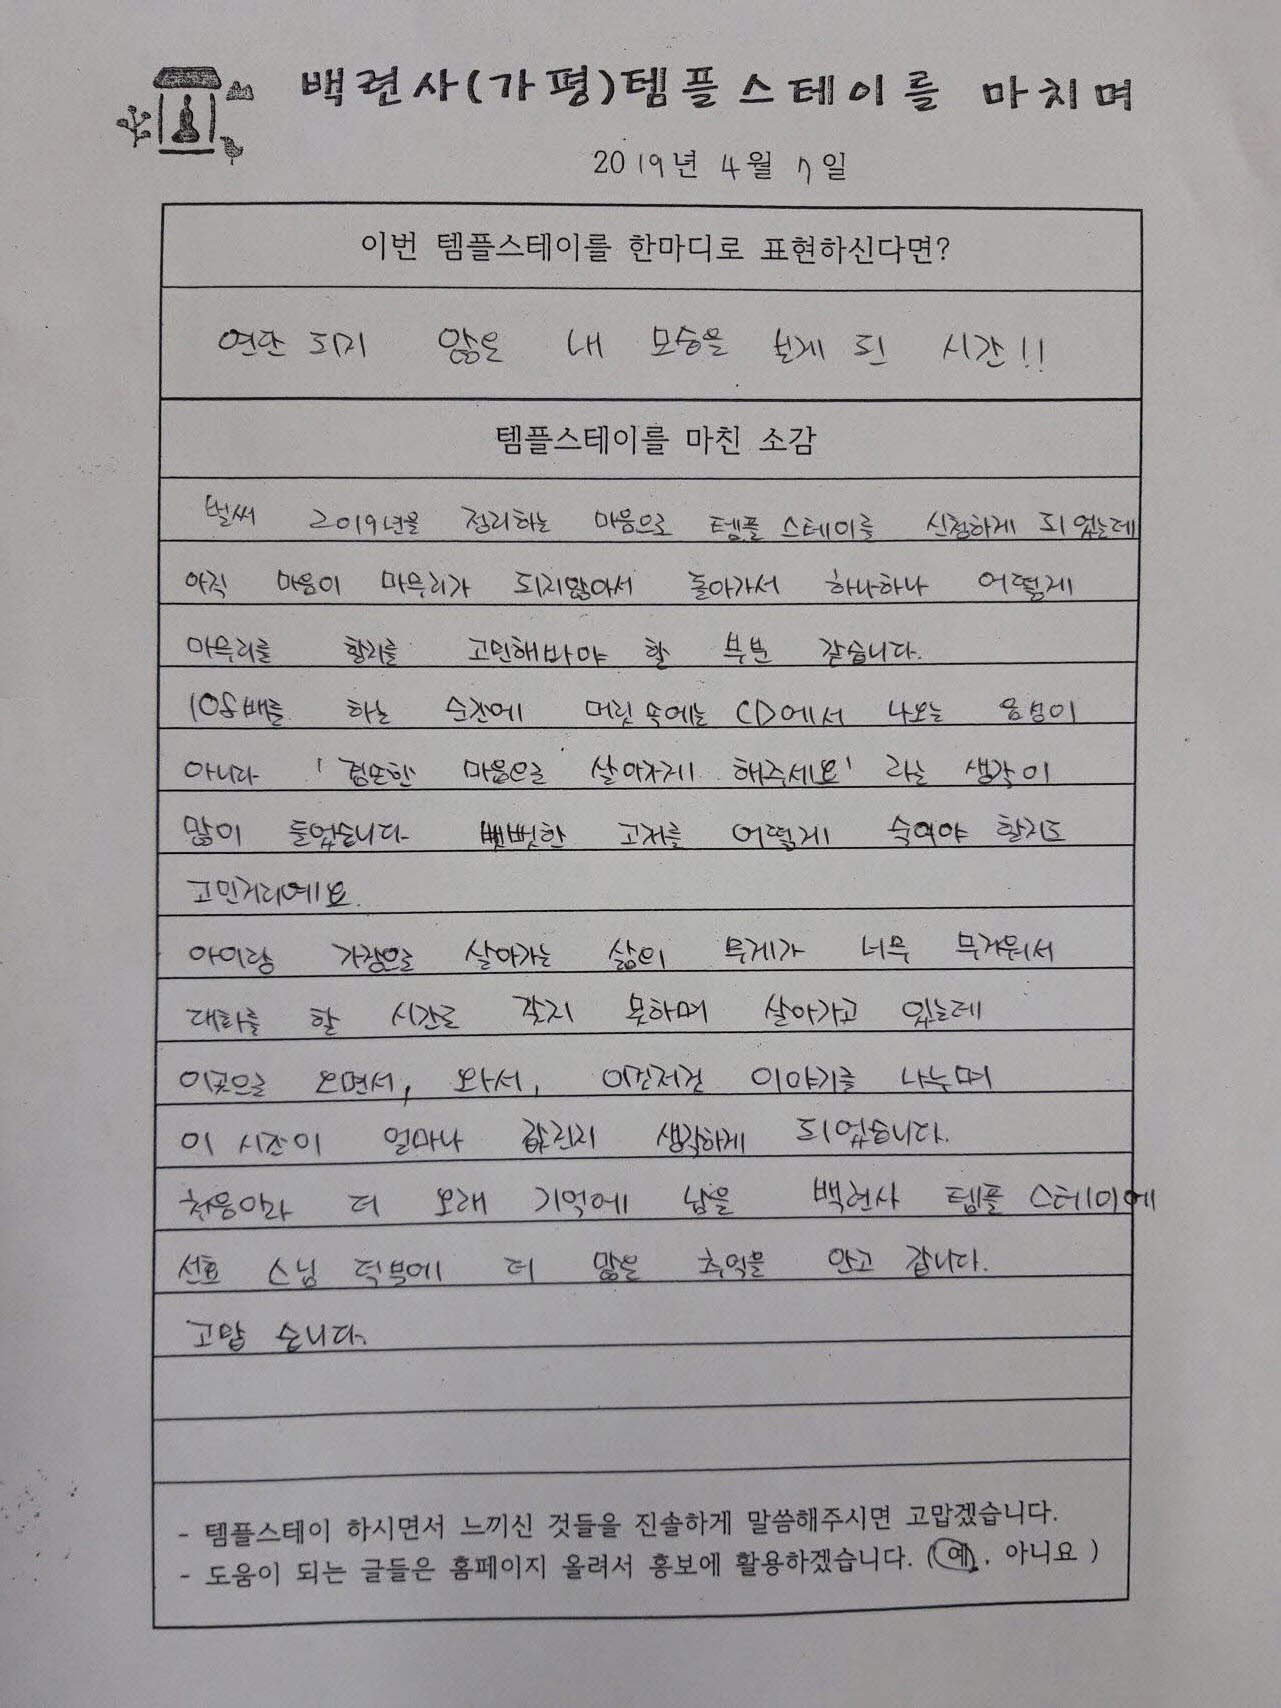 백련사(가평)템플스테이를 마치며
2019년 4월 7일
이번 템플스테이를 한마디로 표현하신다면?
연단 되지 않은 내 모습을 보게 된 시간!!
템플스테이를 마친 소감
벌써 2019년을 정리하는 마음으로 템플스테이를 신청하게 되었는데
아직 마음이 마무리가 되지않아서 돌아가서 하나하나 어떻게
마무리를 할지를 고민해봐야 할 부분 같습니다.
108배를 하는 순간에 머릿속에는 CD에서 나오는 음성이
아니라 '겸손한 마음으로 살아가게 해주세요' 라는 생각이
많이 들었습니다. 뻣뻣한 고개를 어떻게 숙여야 할지도
고민거리예요.
아이랑 가장으로 살아가는 삶의 무게가 너무 무거워서
대화를 할 시간도 갖지 못하며 살아가고 있는데
이곳으로 오면서, 와서, 이런저런 이야기를 나누며
이 시간이 얼마나 값진지 생각하게 되었습니다.
처음이라 더 오래 기억에 남을 백련사 템플스테이에
선효 스님 덕분에 더 많은 추억을 안고 갑니다.
고맙습니다.
- 템플스테이 하시면서 느끼신 것들을 진솔하게 말씀해주시면 고맙겠습니다.
- 도움이 되는 글들은 홈페이지 올려서 홍보에 활용하겠습니다. (예, 아니요 )